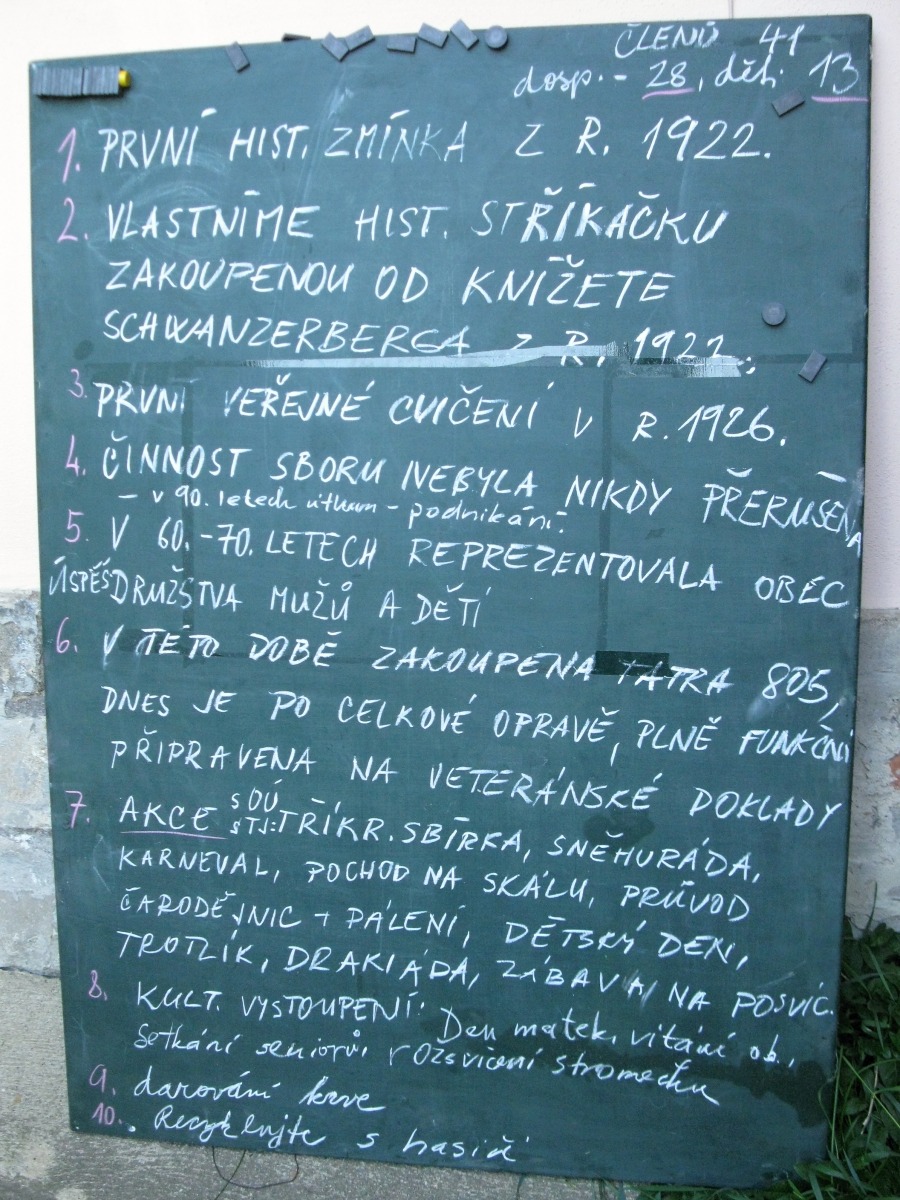 ČLENŮ 41
dosp. - 28, děti 13
1. PRVNÍ HIST. ZMÍNKA Z R. 1922.
2. VLASTNÍME HIST. STŘÍKAČKU
ZAKOUPENOU OD KNÍŽETE
SCHWANZERBERGA Z R. 1922.
3. PRVNÍ VEŘEJNÉ CVIČENÍ V R. 1926.
4. ČINNOST SBORU NEBYLA NIKDY PŘERUŠENA
- v 90. letech útlum - podnikání.
5. V 60.-70. LETECH REPREZENTOVALA OBEC
ÚSPĚŠ DRUŽSTVA MUŽŮ A DĚTÍ
6. V TÉTO DOBĚ ZAKOUPENA TATRA 805,
DNES JE PO CELKOVÉ OPRAVĚ, PLNĚ FUNKČNÍ
PŘIPRAVENA NA VETERÁNSKÉ DOKLADY
7. AKCE SOÚ
STJ: TŘÍKR. SBÍRKA, SNĚHURÁDA,
KARNEVAL, POCHOD NA SKÁLU, PRŮVOD
ČARODĚJNIC + PÁLENÍ, DĚTSKÝ DEN,
TROTLÍK, DRAKIÁDA, ZÁBAVA NA POSVÍC.
8. KULT. VYSTOUPENÍ: Den matek, vítání ob.,
Setkání seniorů, rozsvícení stromečku
9. darování krve
10. Recyklujte s hasiči